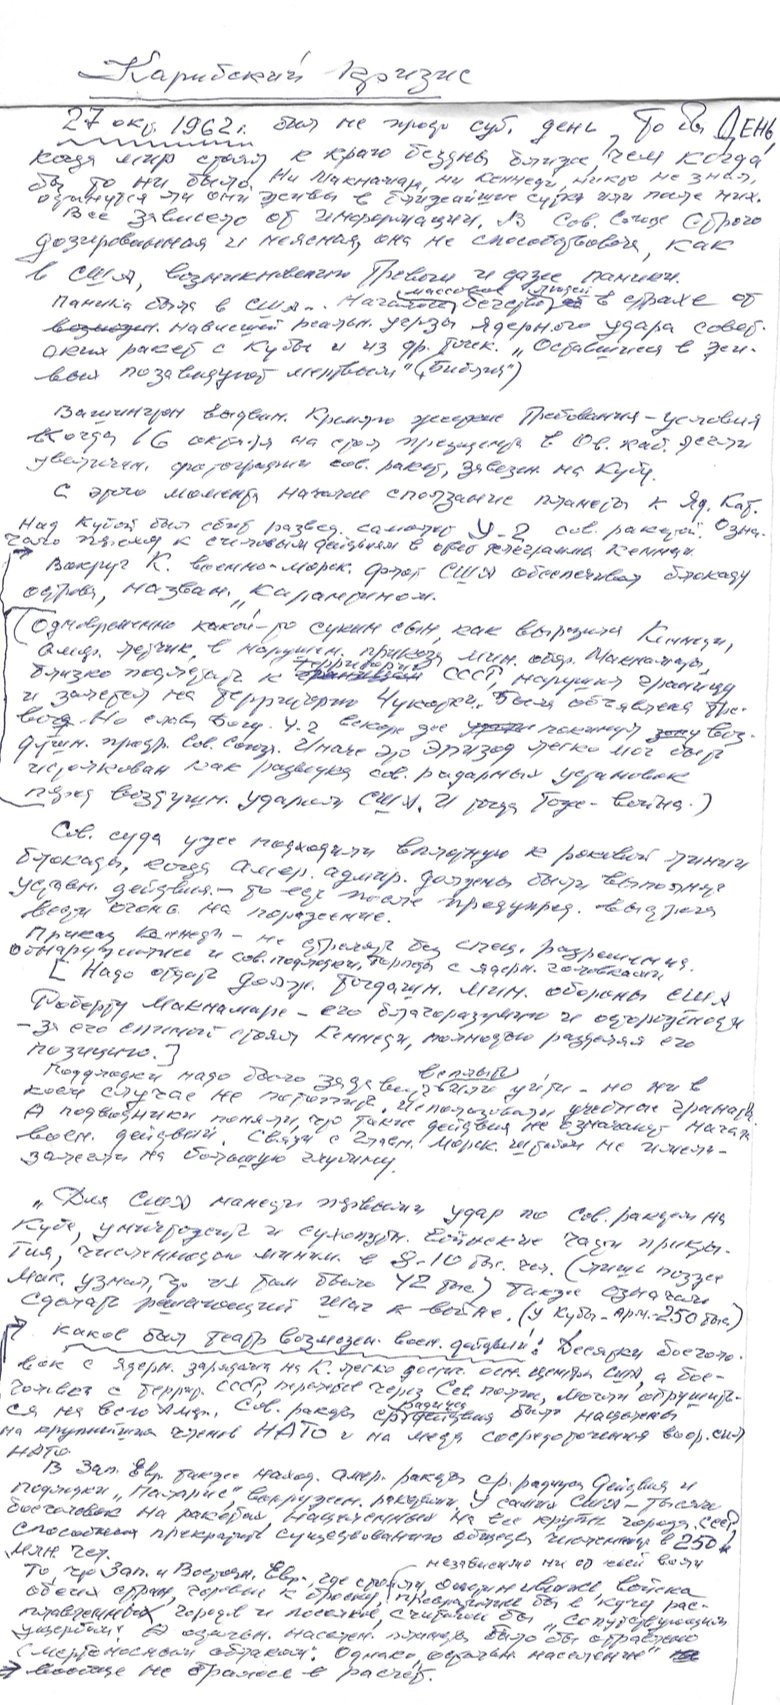 Карибский кризис
27 окт. 1962 г. был не просто суб. день, то был ДЕНЬ,
когда мир стоял к краю бездны ближе, чем когда
бы то ни было. Ни Макнамара, ни Кеннеди, никто не знал,
останутся ли они живы в ближайшие сутки или после них.
Все зависело от информации. В Сов. Союзе строго
дозированная и неясная, она не способствовала, как
в США, возникновению тревоги и даже паники.
Паника была в США... Началось массовое бегство людей в страхе от
нависшей реальн. угрозы ядерного удара совет-
ских ракет с Кубы и из др. точек. „Оставшиеся в жи-
вых позавидуют мертвым" („Библия")
Вашингтон выдвин. Кремлю жесткие требования – условия
когда 16 октября на стол президента в Ов. каб. легли
увеличен. фотографии сов. ракет, завезен. на Кубу.
С этого момента началось сползание планеты к Яд. Кат.
Над Кубой был сбит развед. самолет У-2 сов. ракетой. Озна-
чало к действиям в ответ телеграмма Кеннеди.
Вокруг К. военно-морск. флот США обеспечивал блокаду
острова, назван. „карантином.
(Одновременно какой-то сукин сын, как выразился Кеннеди,
амер. летчик, в нарушен. приказа мин. обор. Макнамары,
близко подлетал к территории СССР, нарушил границу
и залетел на территорию Чукотки. Была объявлена тре-
вога. Но слава Богу, У-2 вскоре же покинул воз-
душн. простр. Сов. Союза. Иначе это эпизод легко мог быть
истолкован как разведка сов. радарных установок
перед воздушн. ударом США. И тогда тоже – война.)
Сов. суда уже подходили вплотную к роковой линии
блокады, когда амер. адмир. должны были выполнить
действия – то есть после предупред. выстрела
вести огонь на поражение.
Приказ Кеннеди – не стрелять без спец. разрешения.
Обнаружили и сов. подлодки, торпеды с ядерн. головками
[Надо отдать должн. тогдашн. мин. обороны США
Роберту Макнамаре – его благоразумию и осторожности
– за его спиной стоял Кеннеди, полностью разделяя его
позицию.]
Подлодки надо было заставить всплыть или уйти – но ни в
коем случае не потопить. Использовали учебные гранаты.
А подводники поняли, что такие действия не означают начала
воен. действий. Связи с Главн. Морск. штабом не имели –
залегли на большую глубину.
„Для США нанести первыми удар по сов. ракетам на
Кубе, уничтожить и сухопутн. воинские части прикры-
тия, численностью миним. в 8-10 тыс. чел. (лишь позже
Мак. узнал, что их там было 42 тыс) также означало
сделать решающий шаг к войне. (У Кубы – арм.–250 тыс.)
Каков был театр возможн. воен. действий! Десятки боеголо-
вок с ядерн. зарядами на К. легко достиг. осн. центры США, а бое-
головки с террит. СССР, перелетев через Сев. полюс, могли обрушить-
ся на всю Амер. Сов. ракеты ср. радиуса действия были нацелены
на крупнейших членов НАТО и на места сосредоточения воор. сил
НАТО
В Зап. Евр. также наход. амер. ракеты ср. радиуса действия и
подлодки „Поларис", вооружен. ракетами. У самих США – тысячи
боеголовок на ракетах, нацеленных на все крупн. города СССР,
способных прекратить существование общества численностью в 250
млн. чел.
То, что Зап. и Восточн. Евр., где стояли, независимо ни от чьей воли войска
обеих стран, готовые к броску, превратились бы в кучу рас-
плавленных городов и поселков, считали бы „сопутствующим
ущербом". А остальн. населен. планеты было бы отравлено
смертоносным облаком. Однако, остальн. население
вообще не бралось в расчет.